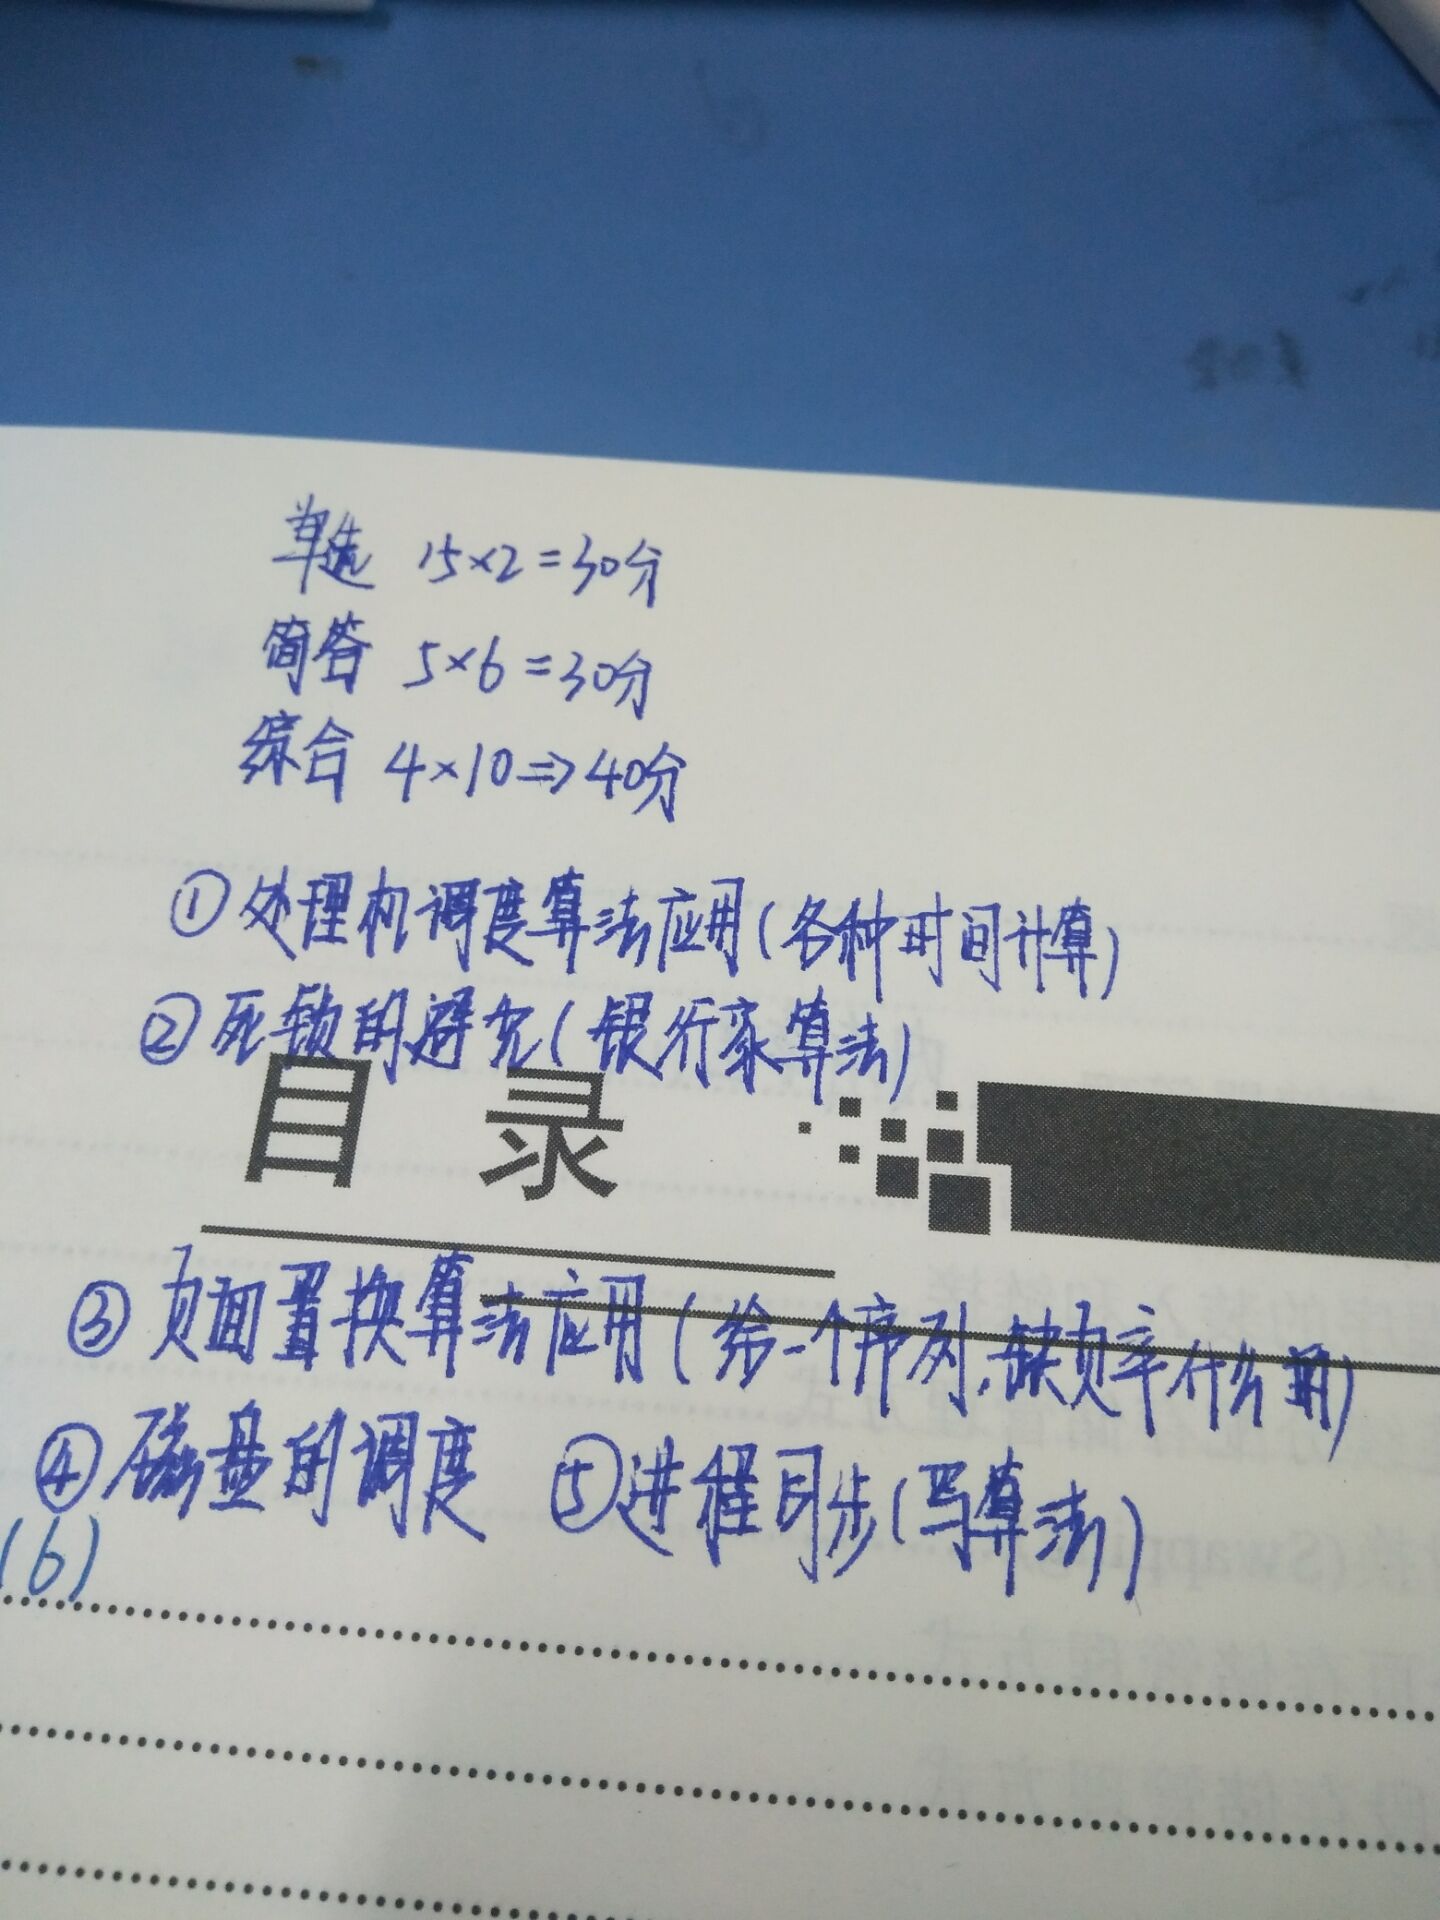 单选 15×2=30分
简答 5×6=30分
综合 4×10⇒40分
①处理机调度算法应用(各种时间计算)
②死锁的避免(银行家算法)
目 录
③页面置换算法应用(给一个序列,缺页率什么的)
④磁盘的调度 ⑤进程同步(写算法)
(6)